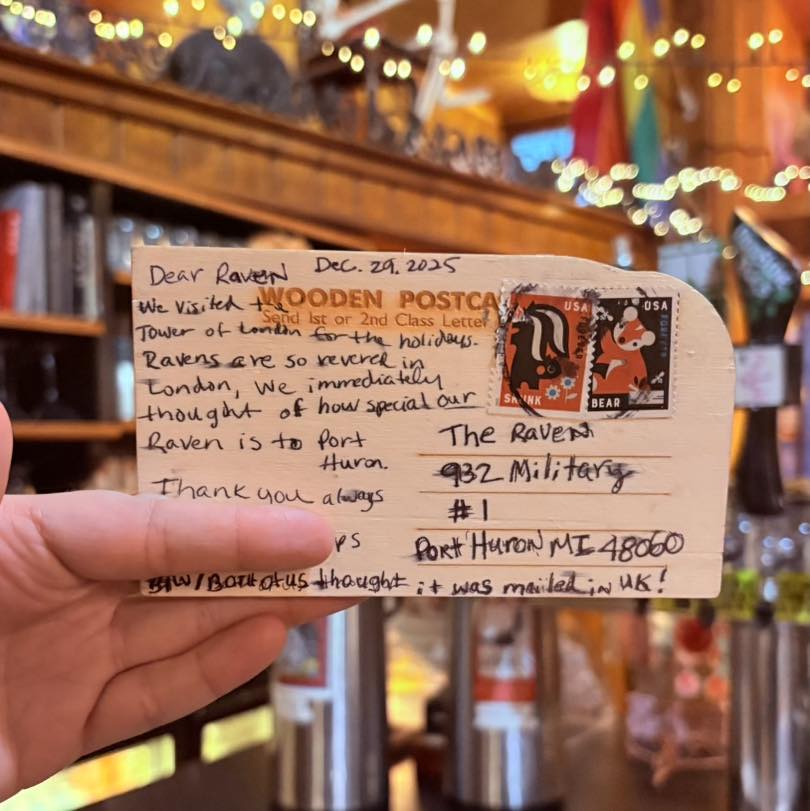 Dear Raven Dec. 29. 2025
We visited the
WOODEN POSTCA
Send 1st or 2nd Class Letter
Tower of London for the holidays.
Ravens are so revered in
London, we immediately
thought of how special our
Raven is to Port
Huron.
Thank you always
PS
BTW/Both of us thought it was mailed in UK!
USA
SKUNK
USA
BEAR
The Raven
932 Military
#1
Port Huron MI 48060